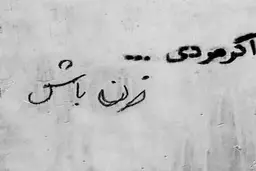 اگر مردی ...
باش